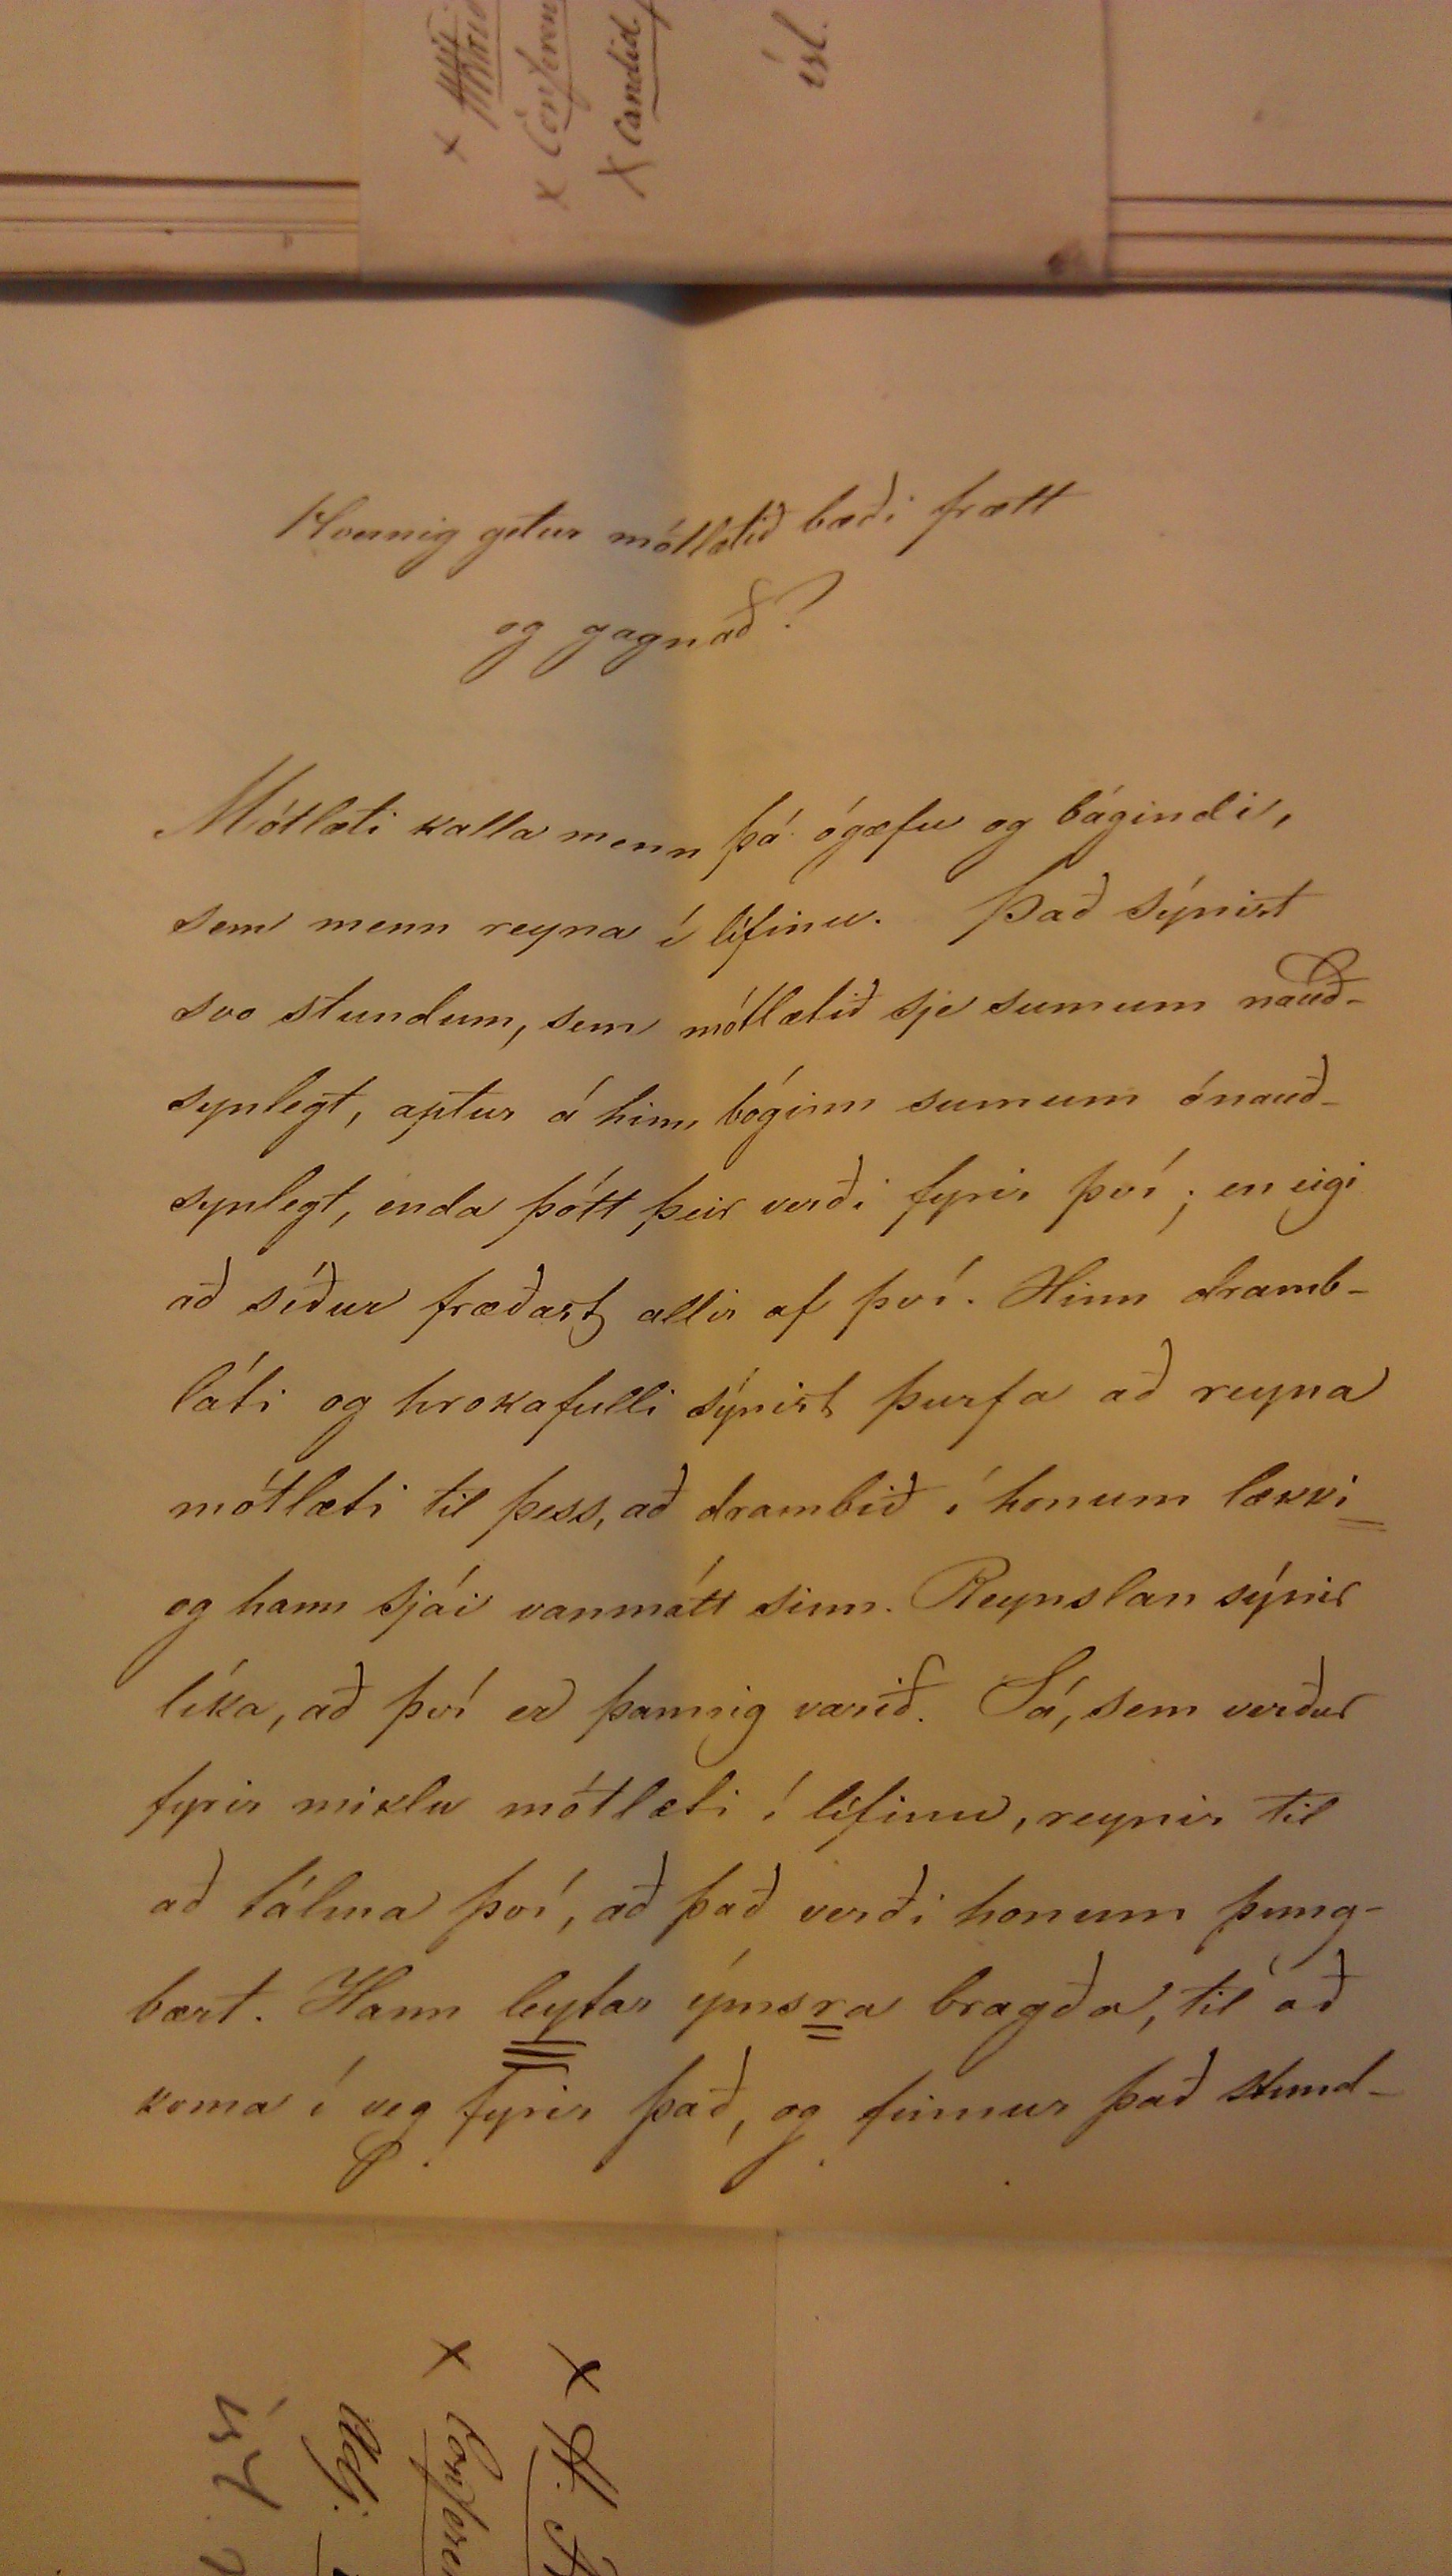 Conferen
Candid.
ísl.
Hvernig getur mótlætið bæði frætt
og gagnað?
Mótlæti kalla menn þá ógæfu og bágindi,
sem menn reyna í lífinu. Það sýnist
svo stundum, sem mótlætið sje sumum nauð-
synlegt, aptur á hinn bóginn sumum ónauð-
synlegt, enda þótt þeir verði fyrir því; en eigi
að síður fræðast allir af því. Hinn dramb-
láti og hrokafulli sýnist þurfa að reyna
mótlæti til þess, að drambið í honum lækki
og hann sjái vanmátt sinn. Reynslan sýnir
líka, að því er þannig varið. Sá, sem verður
fyrir miklu mótlæti í lífinu, reynir til
að tálma því, að það verði honum þung-
bært. Hann leytar ýmsra bragða, til að
koma í veg fyrir það, og finnur það stund-
x H.
x Conferen
Adj.
ísl.